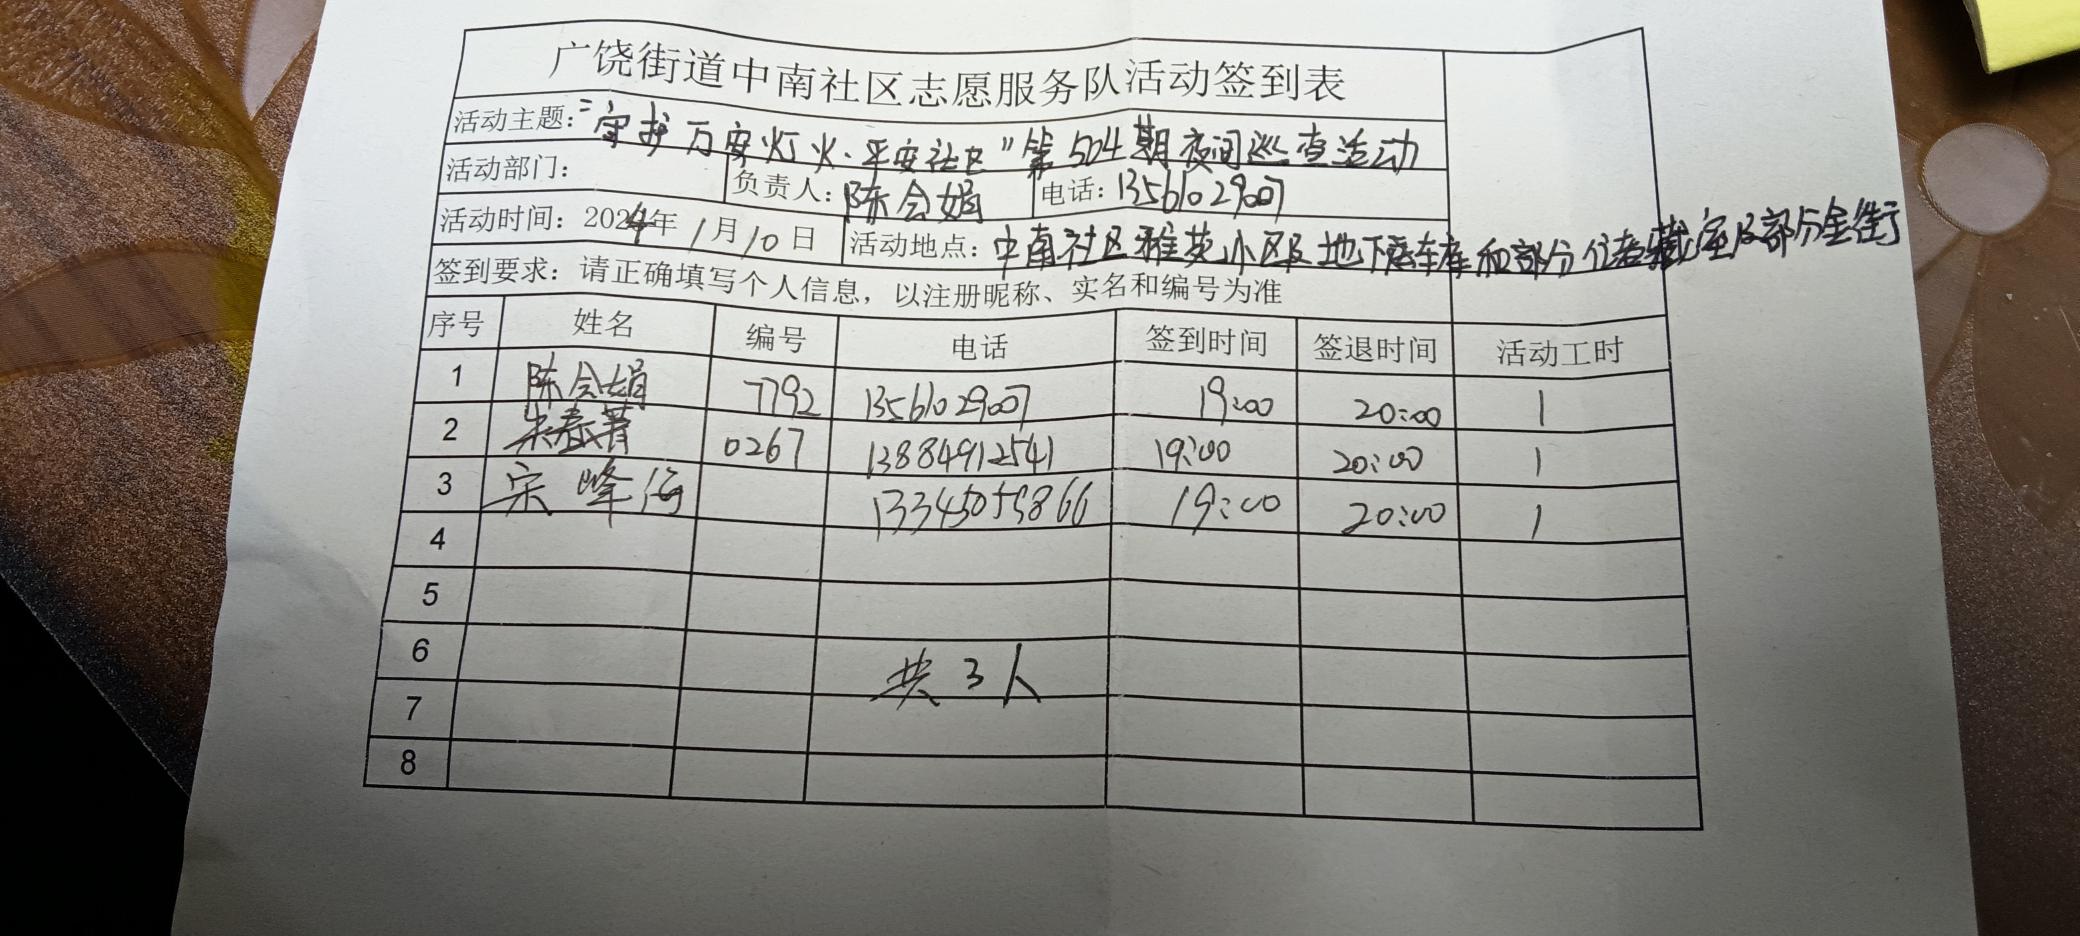 广饶街道中南社区志愿服务队活动签到表
活动主题：“守护万家灯火·平安社区”第504期夜间巡查活动
活动部门： 负责人：陈会娟 电话：13561029007
活动时间：2024年1月10日 活动地点：中南社区雅苑小区及地下车库和部分储藏室及部分金街
签到要求：请正确填写个人信息，以注册昵称、实名和编号为准
序号 姓名 编号 电话 签到时间 签退时间 活动工时
1 陈会娟 7792 13561029007 19:00 20:00 1
2 朱春菁 0267 13884912541 19:00 20:00 1
3 宋峰海 13345055866 19:00 20:00 1
4
5
6 共3人
7
8